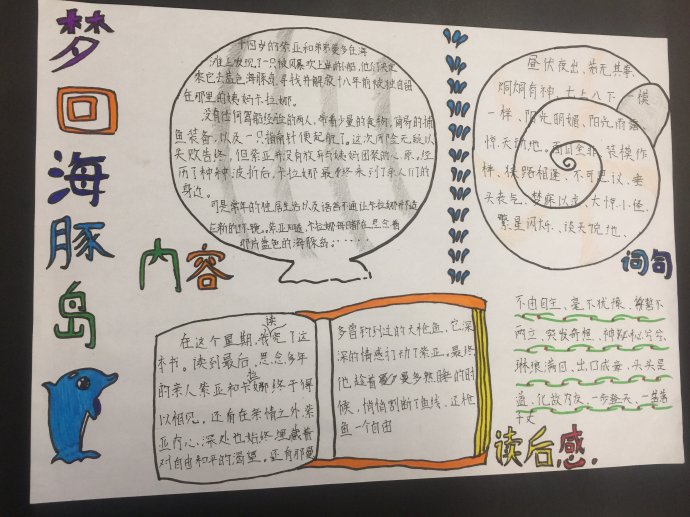 梦回海豚岛
十四岁的索亚和弟弟曼多在海
滩上发现了一只被风暴吹上岸的小船,他们决定
乘它去蓝色海豚岛寻找并解救十八年前被独自留
在那里的姨妈卡拉娜。
没有任何驾船经验的两人,带着少量的食物、简陋的捕
鱼装备,以及一只指南针便起航了。这次冒险无疑以
失败告终,但索亚并没有放弃与姨妈团聚的心愿。经
历了种种波折后,卡拉娜最终来到了亲人们的
身边。
可是常年的独居生活以及语言不通让卡拉娜
那片蓝色的海豚岛……
内容
昼伏夜出、若无其事、
炯炯有神、七上八下、一模
一样、阳光明媚、阳光雨露、
惊天动地、面目全非、装模作
样、狭路相逢、不可思议、垂
头丧气、梦寐以求、大惊小怪、
繁星闪烁、谈天说地、
词句
不由自主、毫不犹豫、势不
两立、突发奇想、神秘
琳琅满目、出口成章、头头是
道、一步登天、一落
千丈
在这个星期,我读完了这
本书。读到最后,思念多年
的亲人索亚和卡拉娜终于得
以相见。还有在亲情之外索
亚内心深处也始终埋藏着
对自由和平的渴望。还有那曼
多曾钓到过的大枪鱼,它深
深的情感打动了索亚。最终
他,趁着曼多熟睡的时
候,悄悄割断了鱼线,还枪
鱼一个自由
读后感